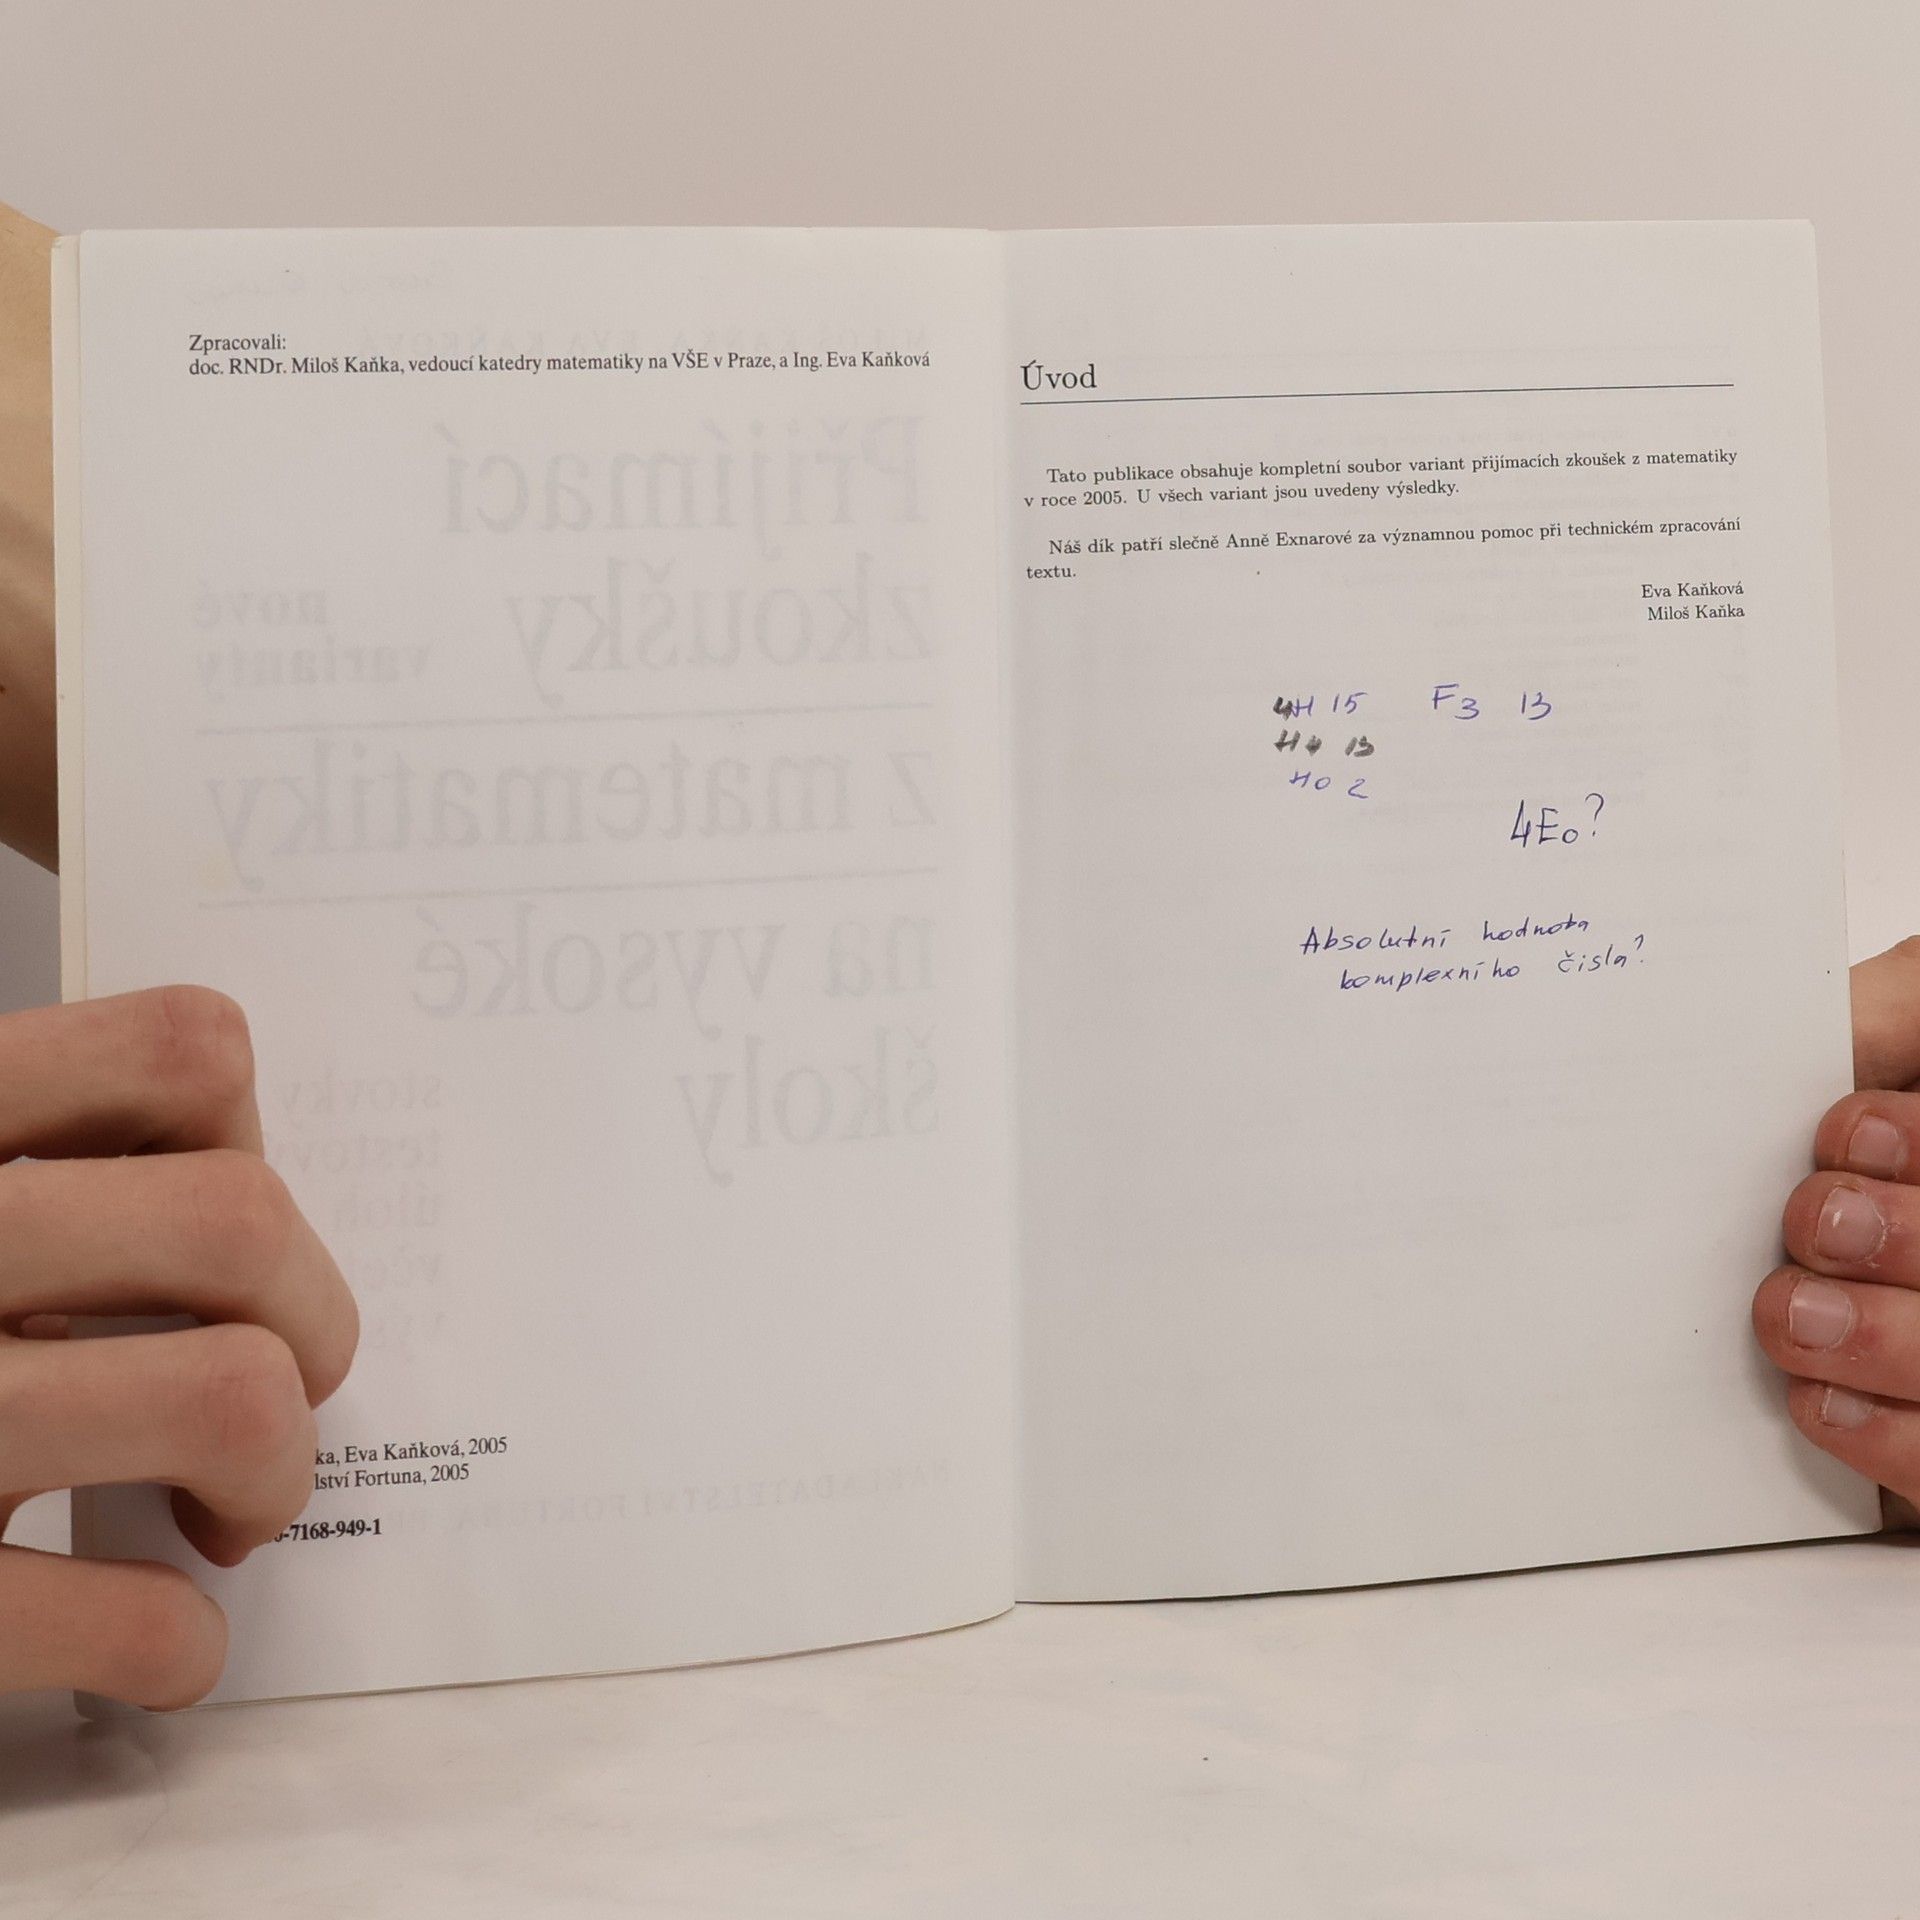 Zpracovali:
doc. RNDr. Miloš Kaňka, vedoucí katedry matematiky na VŠE v Praze, a Ing. Eva Kaňková
ka, Eva Kaňková, 2005
lství Fortuna, 2005
-7168-949-1
Úvod
Tato publikace obsahuje kompletní soubor variant přijímacích zkoušek z matematiky
v roce 2005. U všech variant jsou uvedeny výsledky.
Náš dík patří slečně Anně Exnarové za významnou pomoc při technickém zpracování
textu.
Eva Kaňková
Miloš Kaňka
15 F3 13
13
HO 2
4Eo?
Absolutní hodnota
komplexního čísla?